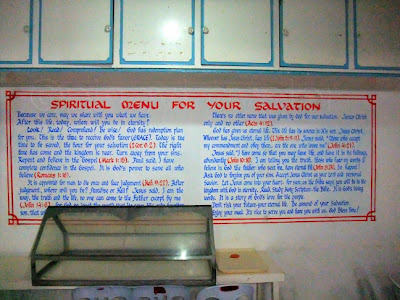 SPIRITUAL MENU FOR YOUR SALVATION
Because we care, may we share with you what we have.
After this life, today, where will you be in eternity?
Look! Read! Comprehend! Be wise! God has redemption plan
for you. This is the time to receive God's favor (GRACE). Today is the
time to be saved, the hour for your salvation (2Cor. 6:2). The right
time has come and the kingdom is near. Turn away from your sins..
Repent and believe in the Gospel (Mark 1:15). Paul said, I have
complete confidence in the Gospel. It is God's power to save all who
believe (Romans 1:16).
It is appointed for man to die once and face judgment (Heb. 9:27). After
judgment, where will you be? Paradise or Hell? Jesus said, I am the
way, the truth and the life, no one can come to the Father except by me
(John 14:6).
There's no other name that was given by God for our salvation. Jesus Christ
only and no other (Acts 4:12).
God has given us eternal life. This life has its source in His son, Jesus Christ.
Whoever has Jesus Christ, has life (1John 5:11-12). Jesus said, "Those who accept
my commandment and obey them, are the one who loves me" (John 14:21).
Jesus said, "I have come so that you may have life, and have it in its fullness
abundantly (John 10:10). I am telling you the truth, those who hear my words &
believe in God the father who sent me, have eternal life (John 5:24). So, Repent!
Ask God to forgive you of your sins. Accept Jesus Christ as your Lord and personal
Savior. Let Jesus come into your heart
God in eternity. Read, Study Holy Scripture- the Bible. It is God's living
words. It is a story of God's love for the people.
Don't risk your future-your eternal life. Be assured of your Salvation.
Enjoy your meal. It's nice to serve you and have you with us. God Bless You!